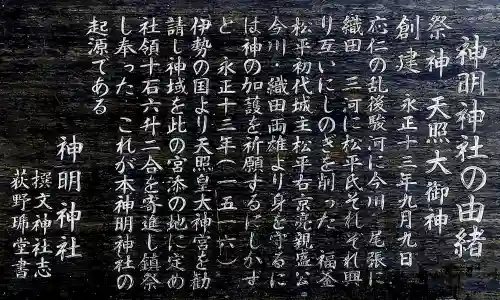 神明神社の由緒
祭神　天照大御神
創建　永正十三年九月九日
応仁の乱後駿河に今川　尾張に
織田　三河に松平氏それぞれ興
り互いにしのぎを削った　福釜
松平初代城主松平右京亮親盛公
今川・織田両雄より身を守るに
は神の加護を祈願するにしかず
と　永正十三年（一五一六）
伊勢の国より天照皇大神宮を勧
請し神域を此の宮添の地に定め
社領十石六升二合を寄進し鎮祭
し奉った　これが本神明神社の
起源である
神明神社
撰文神社志
荻野瑞堂書